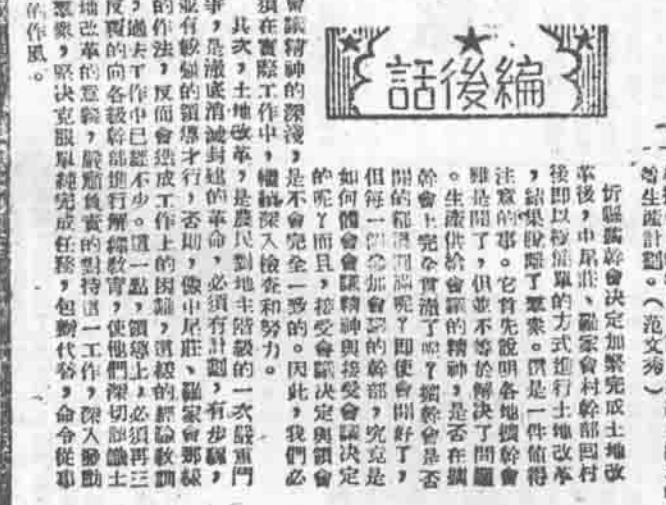 生產計劃。(范文秀)
編後話
忻縣擴幹會决定加緊完成土地改
革後,中尾莊、羅家會村幹部回村
後即以極簡單的方式進行土地改革
,結果脫離了羣衆。這是一件值得
注意的事。它首先說明各地擴幹會
雖是開了,但並不等於解决了問題
。生產供給會議的精神,是否在擴
幹會上完全貫澈了呢?擴幹會是否
開的都很圓滿呢?即使會開好了,
但每一個參加會議的幹部,究竟是
如何體會會議精神與接受會議决定
的呢?而且,接受會議决定與領會
會議精神的深淺,是不會完全一致的。因此,我們必
須在實際工作中,繼續深入檢查和努力。
其次,土地改革,是農民對地主階級的一次嚴重鬥
爭,是澈底消滅封建的革命,必須有計劃,有步驟,
並有較強的領導才行,否則,像中尾莊、羅家會那樣
的作法,反而會造成工作上的困難,這樣的經驗教訓
,過去工作中已經不少。這一點,領導上,必須再三
反覆的向各級幹部進行解釋教育,使他們深切認識土
地改革的意義,嚴肅負責的對待這一工作,深入發動
羣衆,堅决克服單純完成任務,包辦代替,命令從事
的作風。